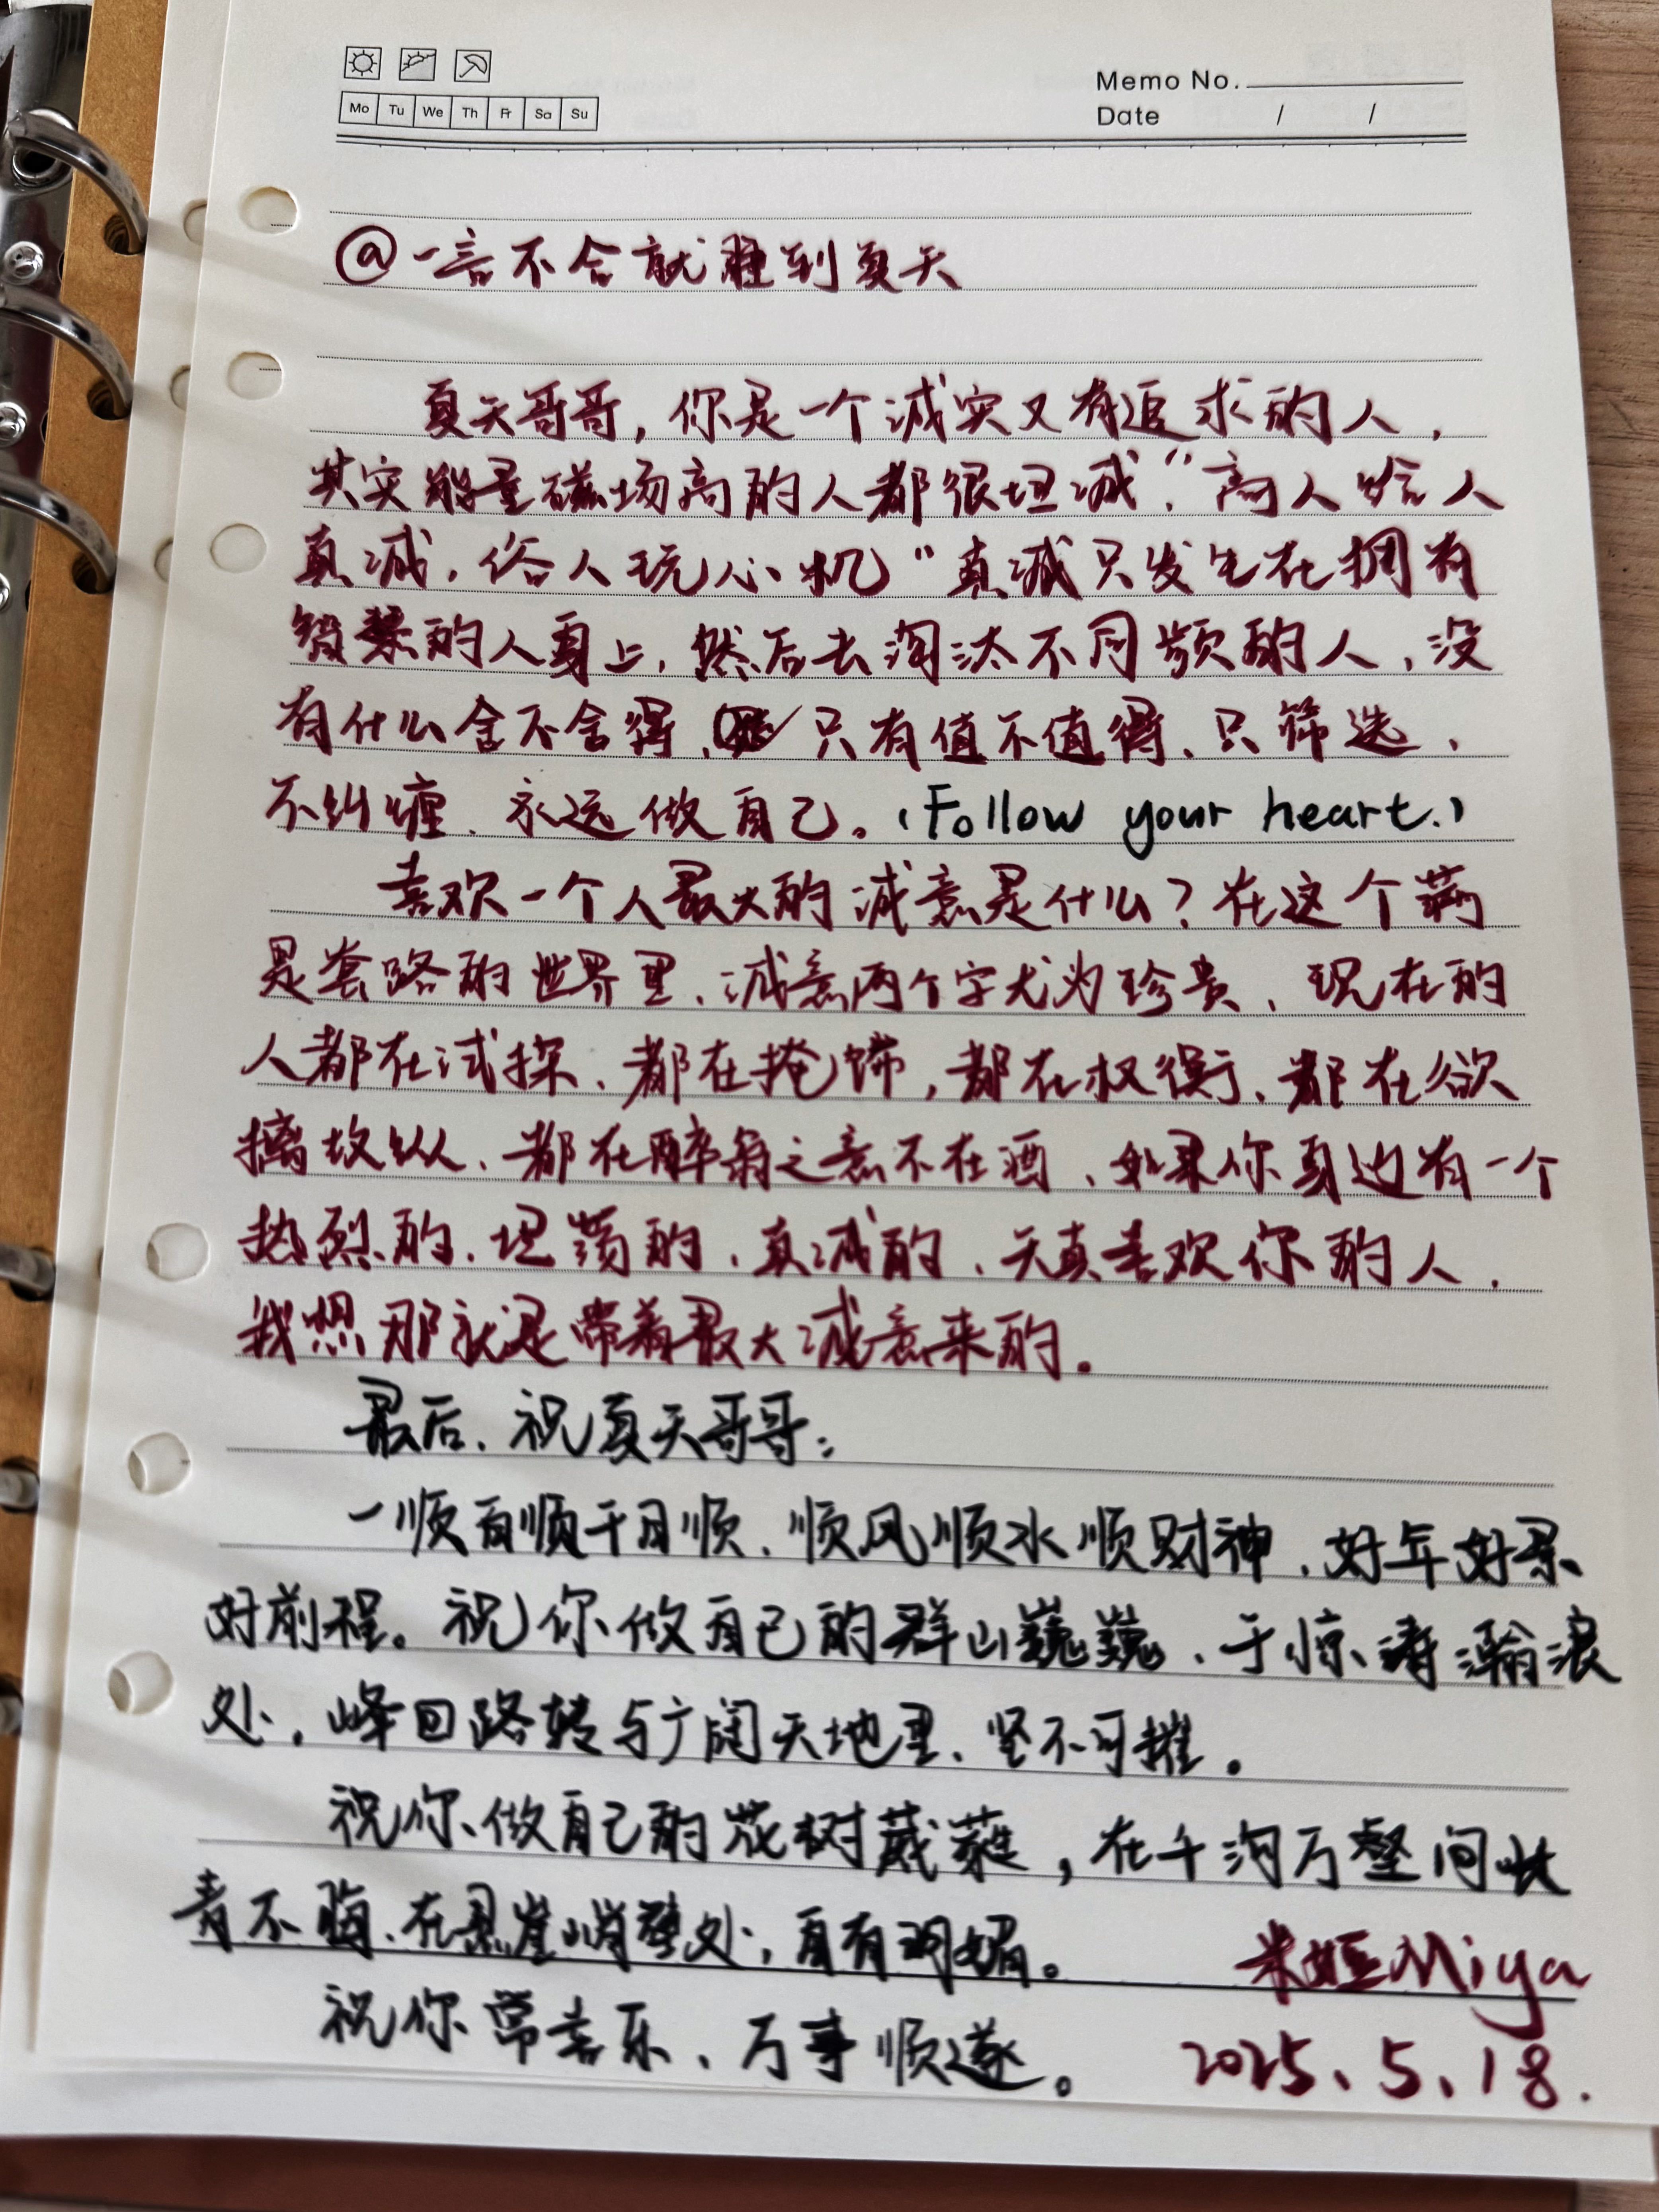 Memo No.
Mo Tu We Th Fr Sa Su
Date / /
@一言不合就睡到夏天
夏天哥哥,你是一个诚实又有追求的人,
其实能量磁场高的人都很坦诚,“高人给人
真诚,俗人玩心机”真诚只发生在拥有
智慧的人身上,然后去淘汰不同频的人,没
有什么舍不舍得、只有值不值得、只筛选、
不纠缠、永远做自己。(Follow your heart.)
喜欢一个人最大的诚意是什么?在这个满
是套路的世界里、诚意两个字尤为珍贵、现在的
人都在试探、都在掩饰,都在权衡、都在欲
擒故纵、都在醉翁之意不在酒、如果你身边有一个
热烈的、坦荡的、真诚的、天真喜欢你的人,
我想那就是带着最大诚意来的。
最后、祝夏天哥哥:
一顺百顺千日顺、顺风顺水顺财神、好年好景
好前程。祝你做自己的群山巍巍、于惊涛瀚浪
处,峰回路转与广阔天地里、坚不可摧。
祝你做自己的花树葳蕤,在千沟万壑间
青不、在悬崖峭壁处,自有明媚。
米娅Miya
祝你常喜乐、万事顺遂。
2025、5、18.